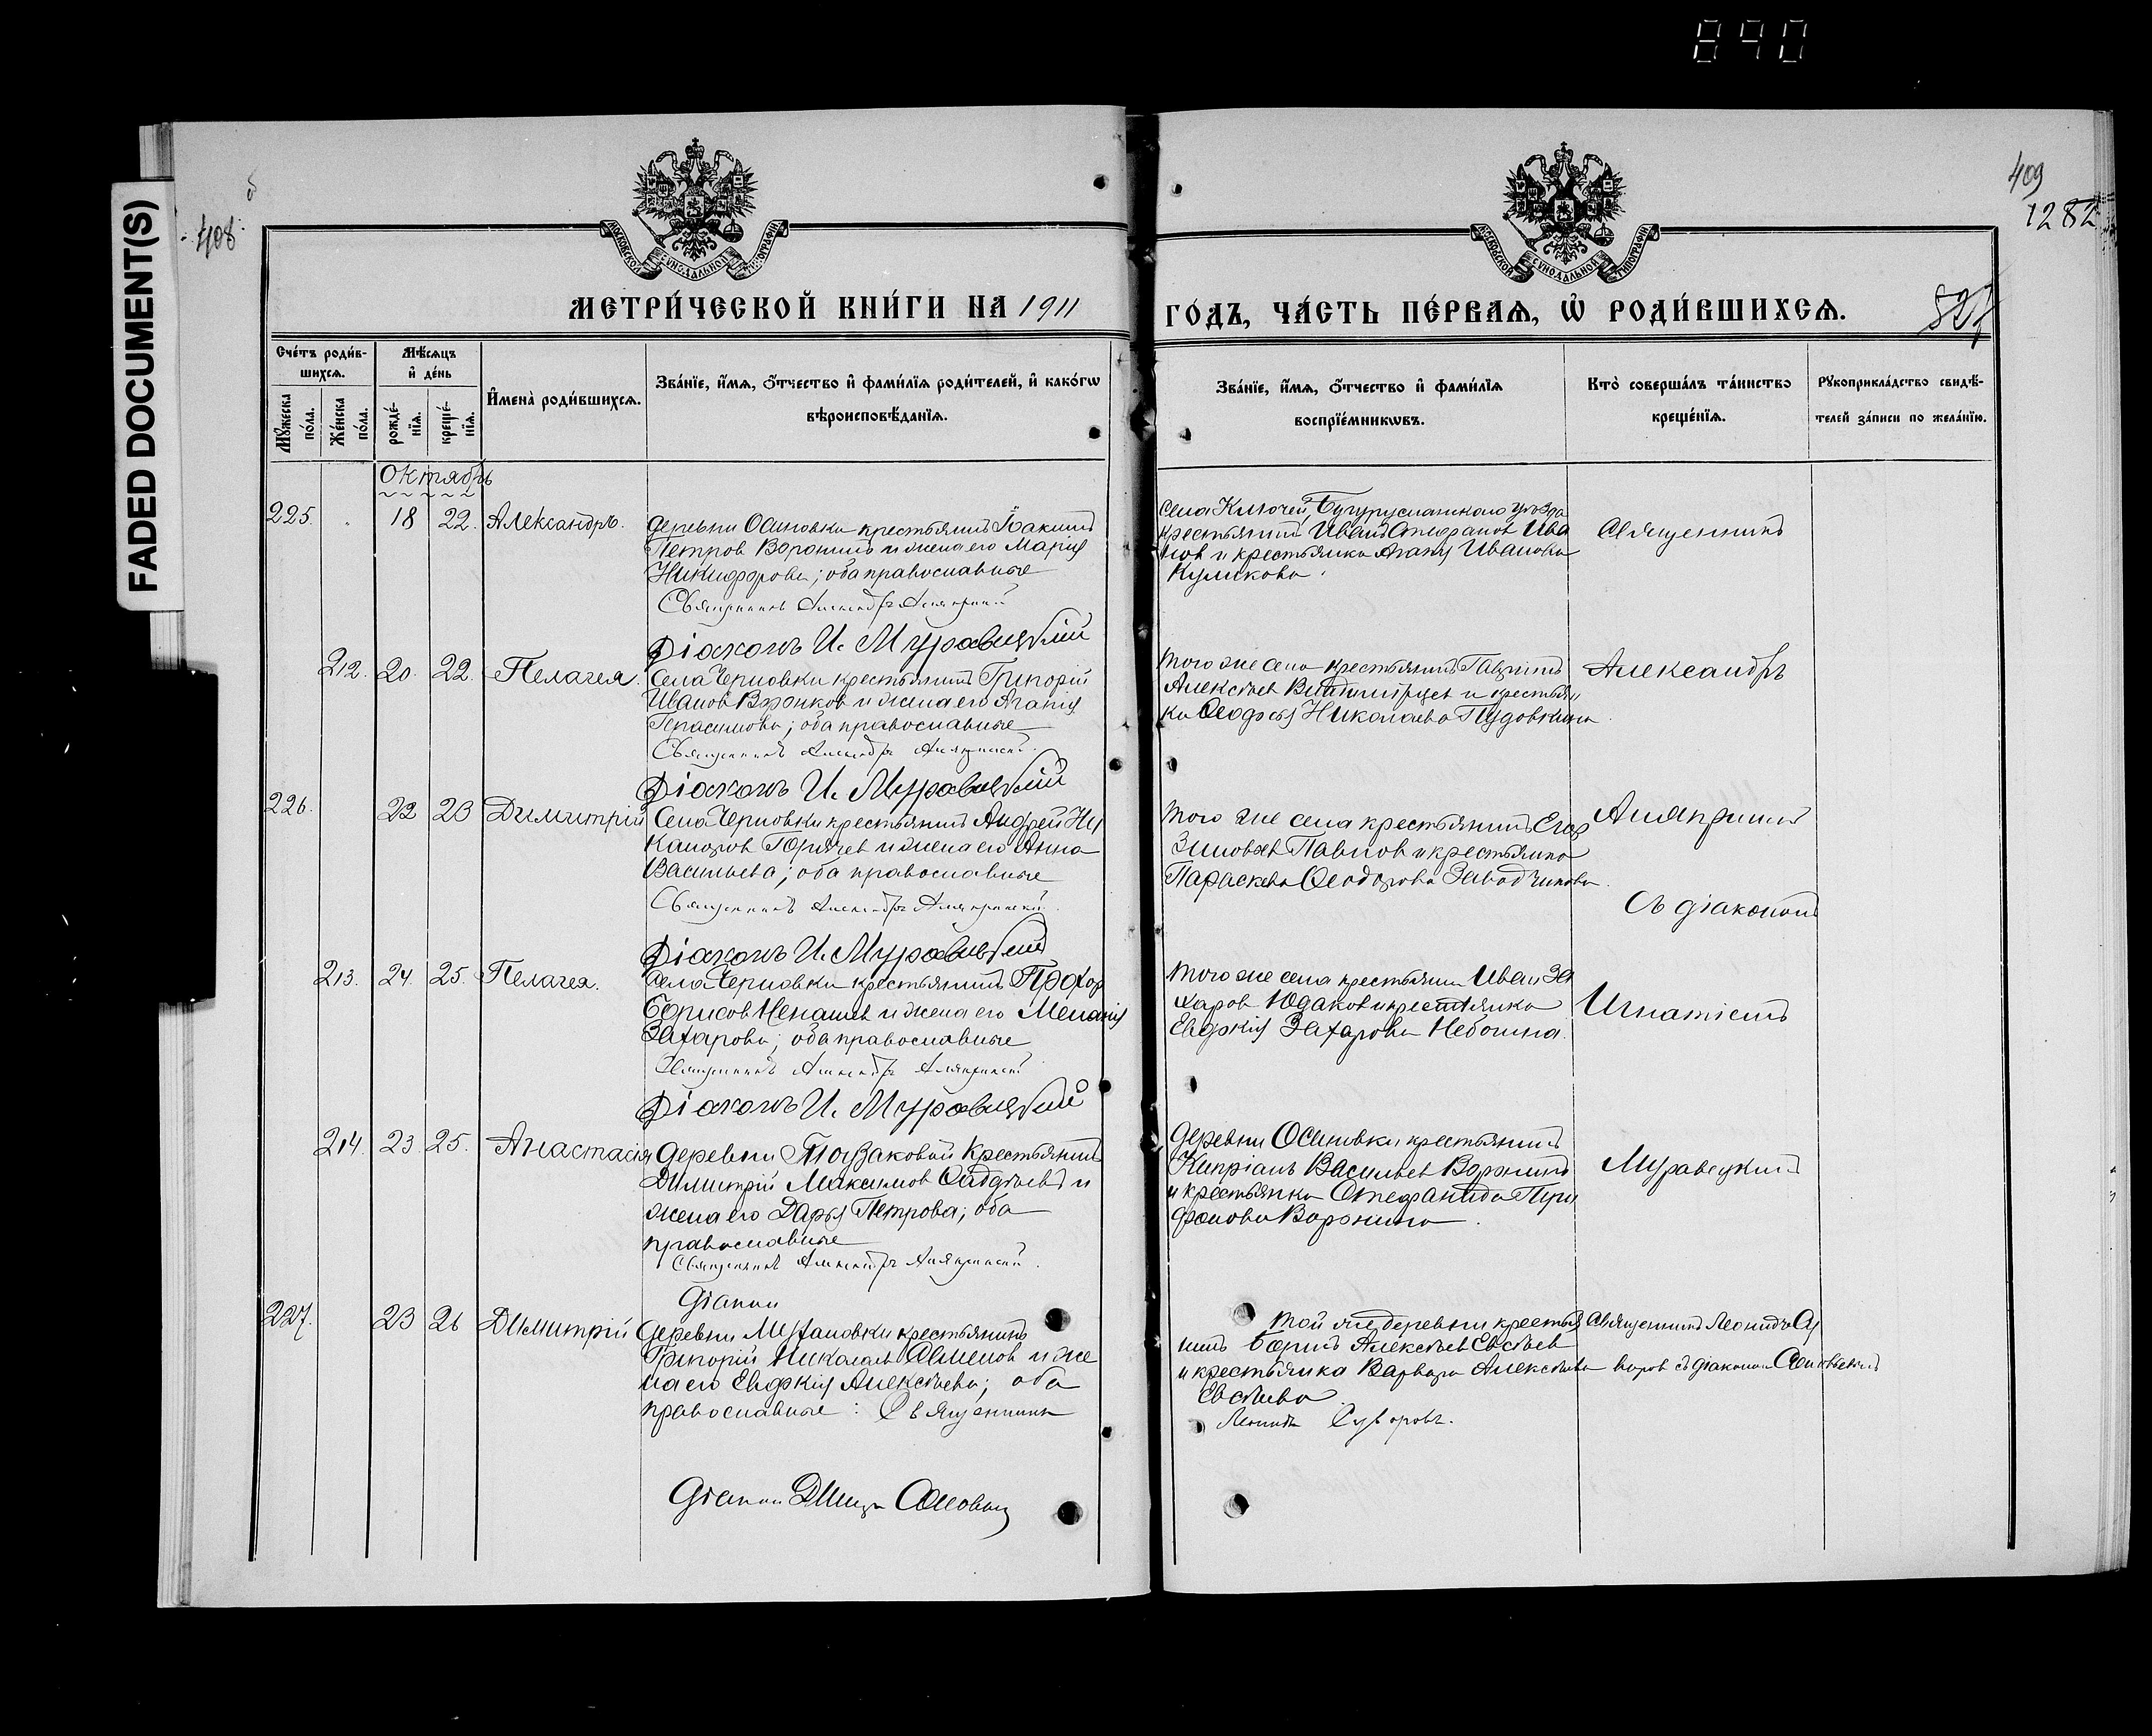 890
FADED DOCUMENT(S)
408
409
1282
827
МОСКОВСКОЙ СѴНОДАЛЬНОЙ ТИПОГРАФІИ
МОСКОВСКОЙ СѴНОДАЛЬНОЙ ТИПОГРАФІИ
МЕТРИ́ЧЕСКОЙ КНИ́ГИ НА 1911
ГО́ДЪ, ЧА́СТЬ ПЕ́РВАѦ, Ѡ҆ РОДИ́ВШИХСѦ.
Сче́тъ роди́в-
шихсѧ.
Мѣ́сѧцъ
и҆ де́нь
Му́жеска по́ла.
Же́нска по́ла.
рожде́-
нїѧ.
креще́-
нїѧ.
И҆мена̀ роди́вшихсѧ.
Зва́нїе, и҆́мѧ, ѻ҆́тчество и҆ фами́лїѧ роди́телей, и҆ како́гѡ
вѣроисповѣ́данїѧ.
Зва́нїе, и҆́мѧ, ѻ҆́тчество и҆ фами́лїѧ
воспрїе́мникѡвъ.
Кто̀ соверша́лъ та́инство
креще́нїѧ.
Рꙋкоприкла́дство свидѣ́-
телей за́писи по жела́нїю.
Октябрь
225. 18 22. Александръ.
деревни Осиновки крестьянинъ Іоакимъ
Петров Воронинъ и жена его Марія
Никифорова; оба православные
Священникъ Александръ Аляпринскій
Діаконъ И. Муравецкій
села Ключей, Бугурусланскаго уѣзда
крестьянинъ Иванъ Стефанов Ива
нов и крестьянка Агапія Иванова
Куликова.
Священникъ
212. 20. 22. Пелагея.
Села Черновки крестьянинъ Григорій
Иванов Воронков и жена его Агапія
Герасимова; оба православные
Священникъ Александръ
Діаконъ И. Муравецкій
того же села крестьянинъ
Алексѣев и крестьян
ка Ѳеодосія Николаева Пудовкина.
Александръ
226. 22 23 Димитрій
Села Черновки крестьянинъ Андрей Ни
каноров Горячев и жена его Анна
Васильева; оба православные
Священникъ Александръ
Діаконъ И. Муравецкій
того же села крестьянинъ Егор
Зиновьев Павлов и крестьянка
Параскева Ѳеодорова Заводчикова.
съ діакономъ
213. 24. 25. Пелагея.
Села Черновки крестьянинъ Прохор
Борисов Ненашев и жена его Меланія
Захарова; оба православные
Священникъ Александръ
Діаконъ И. Муравецкій
того же села крестьянин Иван За
харов Юдаков и крестьянка
Евдокія Захарова
Игнатіемъ
214. 23 25. Анастасія
деревни крестьянинъ
Димитрій Максимов и
жена его Дарья Петрова; оба
православные
Священникъ Александръ
Діакон
деревни Осиновки крестьянинъ
Кипріанъ Васильев Воронинъ
и крестьянка Стефанида
Воронина.
Муравецкимъ
227. 23 26 Димитрій
деревни крестьянинъ
Григорій Николаев и же
на его Евдокія Алексѣева; оба
православные: Священникъ
той же деревни крестья
нинъ Борисъ Алексѣев Евсѣев
и крестьянка Варвара Алексѣева
Евсѣева.
Леонидъ Суворовъ.
Священникъ Леонидъ Су
воров съ діакономъ
Діакон